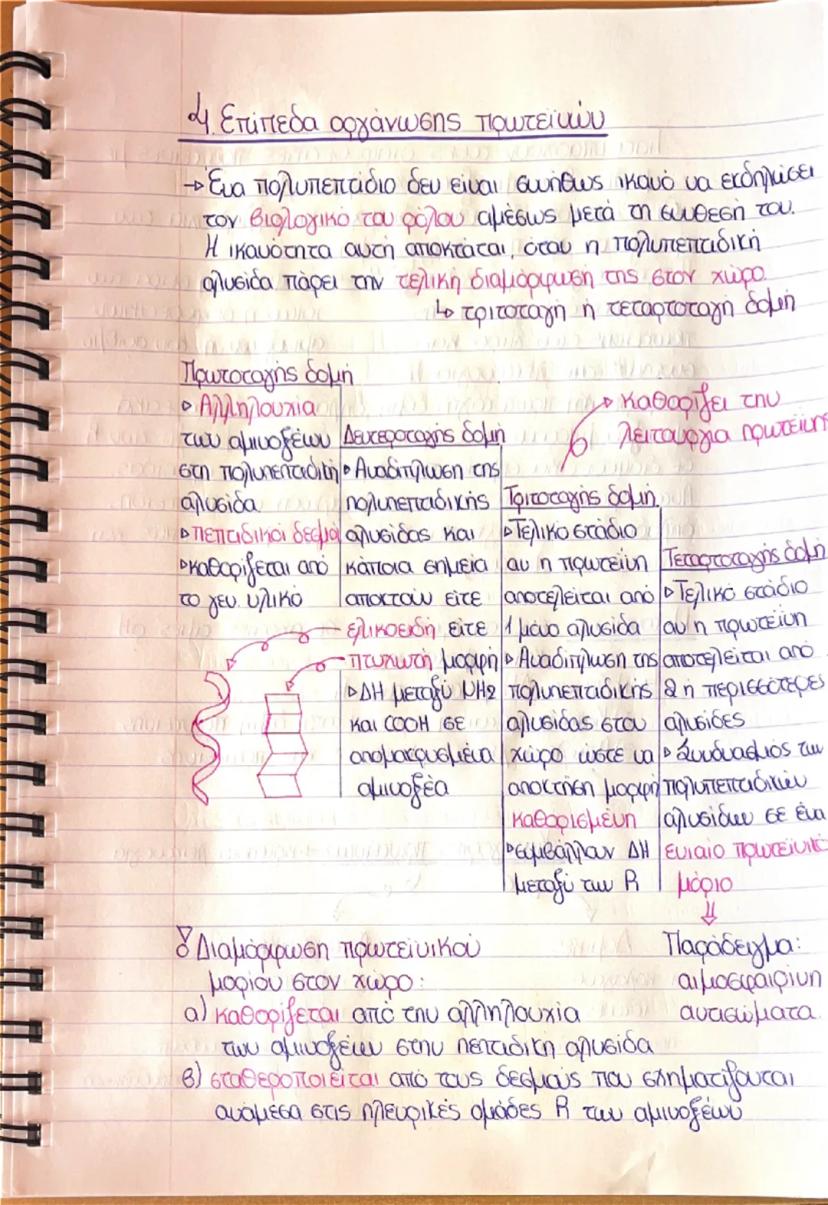 4. Επίπεδα οργάνωσης πρωτεϊνών
→ Ένα πολυπεπτίδιο δεν είναι συνήθως ικανό να εκδηλώσει
τον βιολογικό του ρόλου αμέσως μετά τη σύνθεσή του.
Η ικανότητα αυτή αποκτάται, όταν η πολυπεπτιδική
αλυσίδα πάρει την τελική διαμόρφωση της στον χώρο
↳ τριτοταγή ή τεταρτοταγή δομή
Πρωτοταγής δομή
▹ Αλληλουχία
των αμινοξέων
στη πολυπεπτιδική
αλυσίδα
▹ πεπτιδικοί δεσμοί
▹ καθορίζεται από
το γεν. υλικό
Δευτεροταγής δομή
▹ Αναδίπλωση της
πολυπεπτιδικής
αλυσίδας και
κάποια σημεία
αποκτούν είτε
ελικοειδή είτε
πτυχωτή μορφή
▹ ΔΗ μεταξύ NH2
και COOH σε
απομακρυσμένα
αμινοξέα
→ καθορίζει την
λειτουργία πρωτεΐνης
Τριτοταγής δομή
▹ Τελικό στάδιο
αν η πρωτεΐνη
αποτελείται από
1 μόνο αλυσίδα
▹ Αναδίπλωση της
πολυπεπτιδικής
αλυσίδας στον
χώρο ώστε να
αποκτήση μορφή
καθορισμένη
▹ συμβάλλουν ΔΗ
μεταξύ των R
Τεταρτοταγής δομή
▹ Τελικό στάδιο
αν η πρωτεΐνη
αποτελείται από
2 ή περισσότερες
αλυσίδες
▹ Συνδυασμός των
πολυπεπτιδικών
αλυσίδων σε ένα
ενιαίο πρωτεϊνικό
μόριο
⇓
Παράδειγμα:
αιμοσφαιρίνη
αντισώματα
Διαμόρφωση πρωτεϊνικού
μορίου στον χώρο:
α) καθορίζεται από την αλληλουχία
των αμινοξέων στην πεπτιδική αλυσίδα
β) σταθεροποιείται από τους δεσμούς που σχηματίζονται
ανάμεσα στις πλευρικές ομάδες R των αμινοξέων